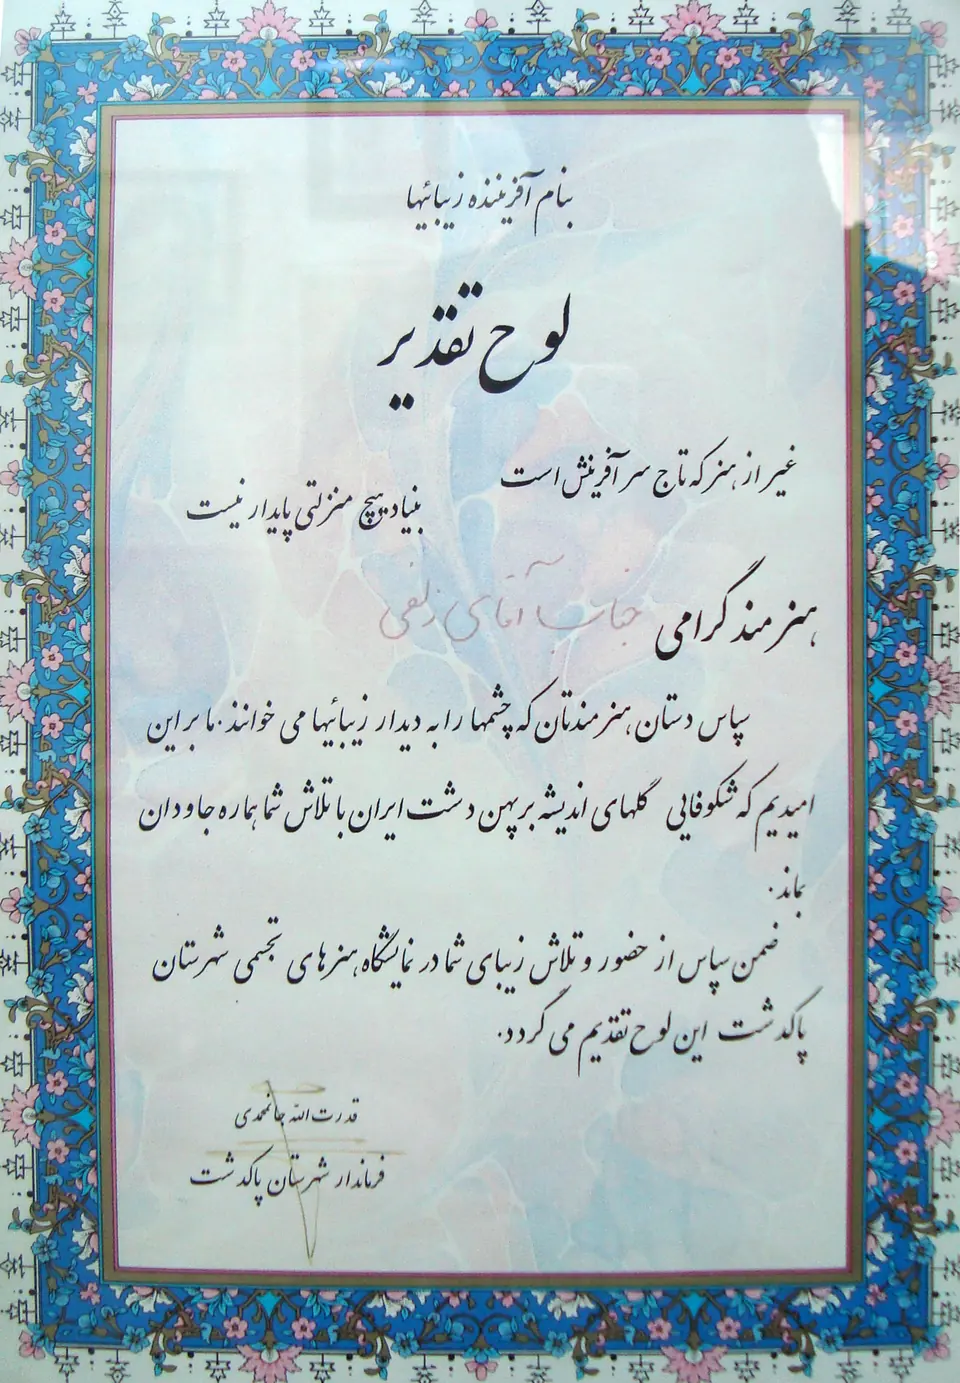 بنام آفریننده زیبائیها
لوح تقدیر
غیر از هنر که تاج سر آفرینش است
بنیاد هیچ منزلتی پایدار نیست
هنرمند گرامی جناب آقای زلفی
سپاس دستان هنرمندتان که چشمها را به دیدار زیبائیها می خوانند. ما بر این
امیدیم که شکوفایی گلهای اندیشه بر پهن دشت ایران با تلاش شما هماره جاودان
بماند.
ضمن سپاس از حضور و تلاش زیبای شما در نمایشگاه هنرهای تجسمی شهرستان
پاکدشت این لوح تقدیم می گردد.
قدرت الله جانمحمدی
فرماندار شهرستان پاکدشت